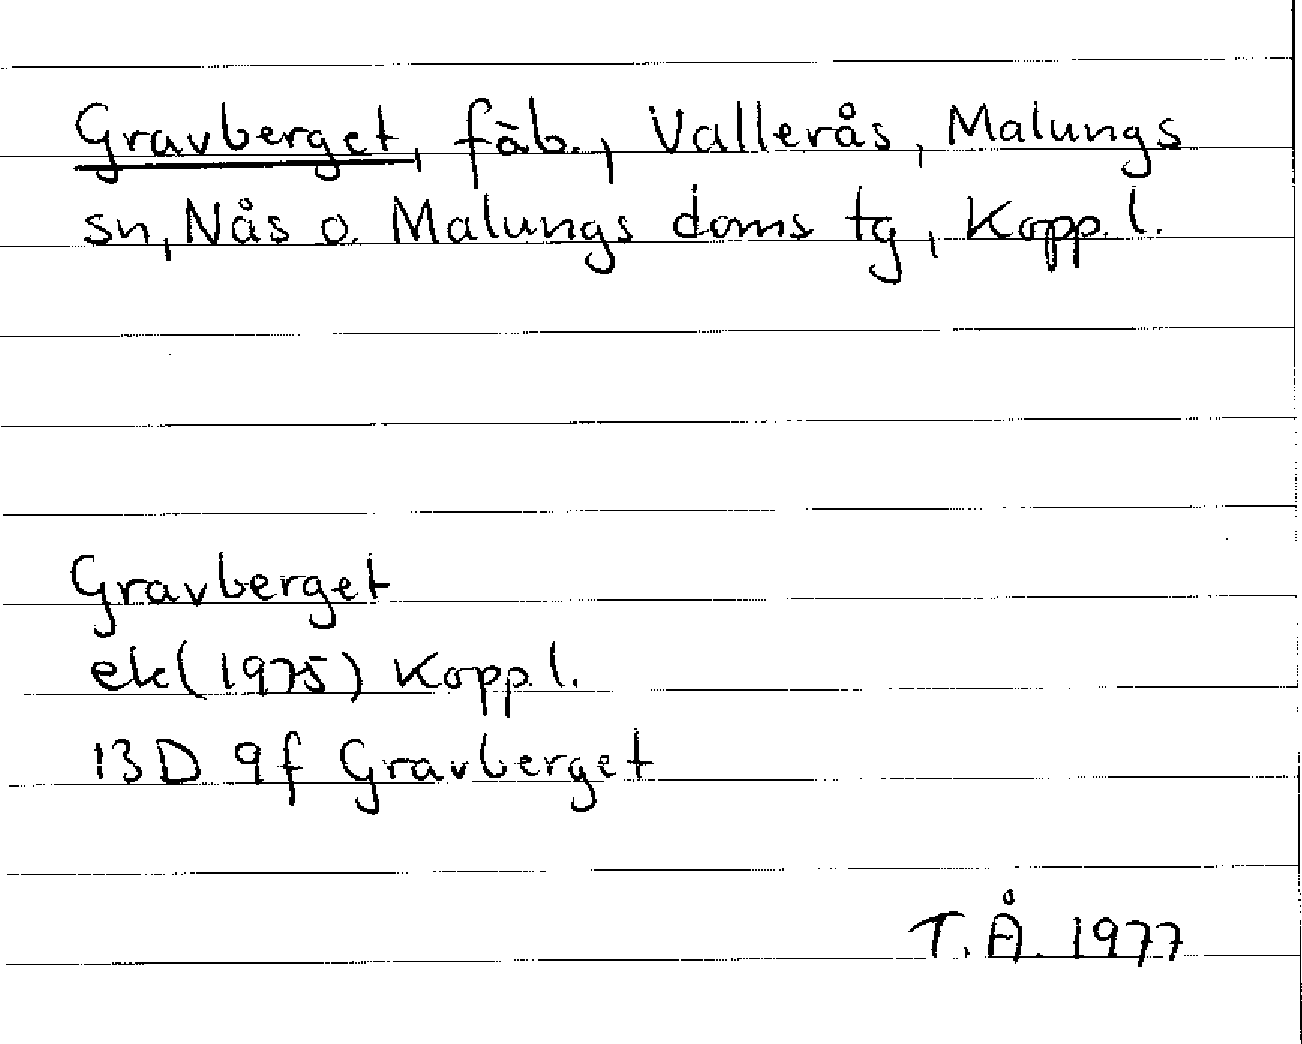 Gravberget, fäb., Vallerås, Malungs
sn, Nås o. Malungs doms tg, Kopp. l.
Gravberget
ek (1975) Kopp. l.
13D 9f Gravberget
T.Å. 1977